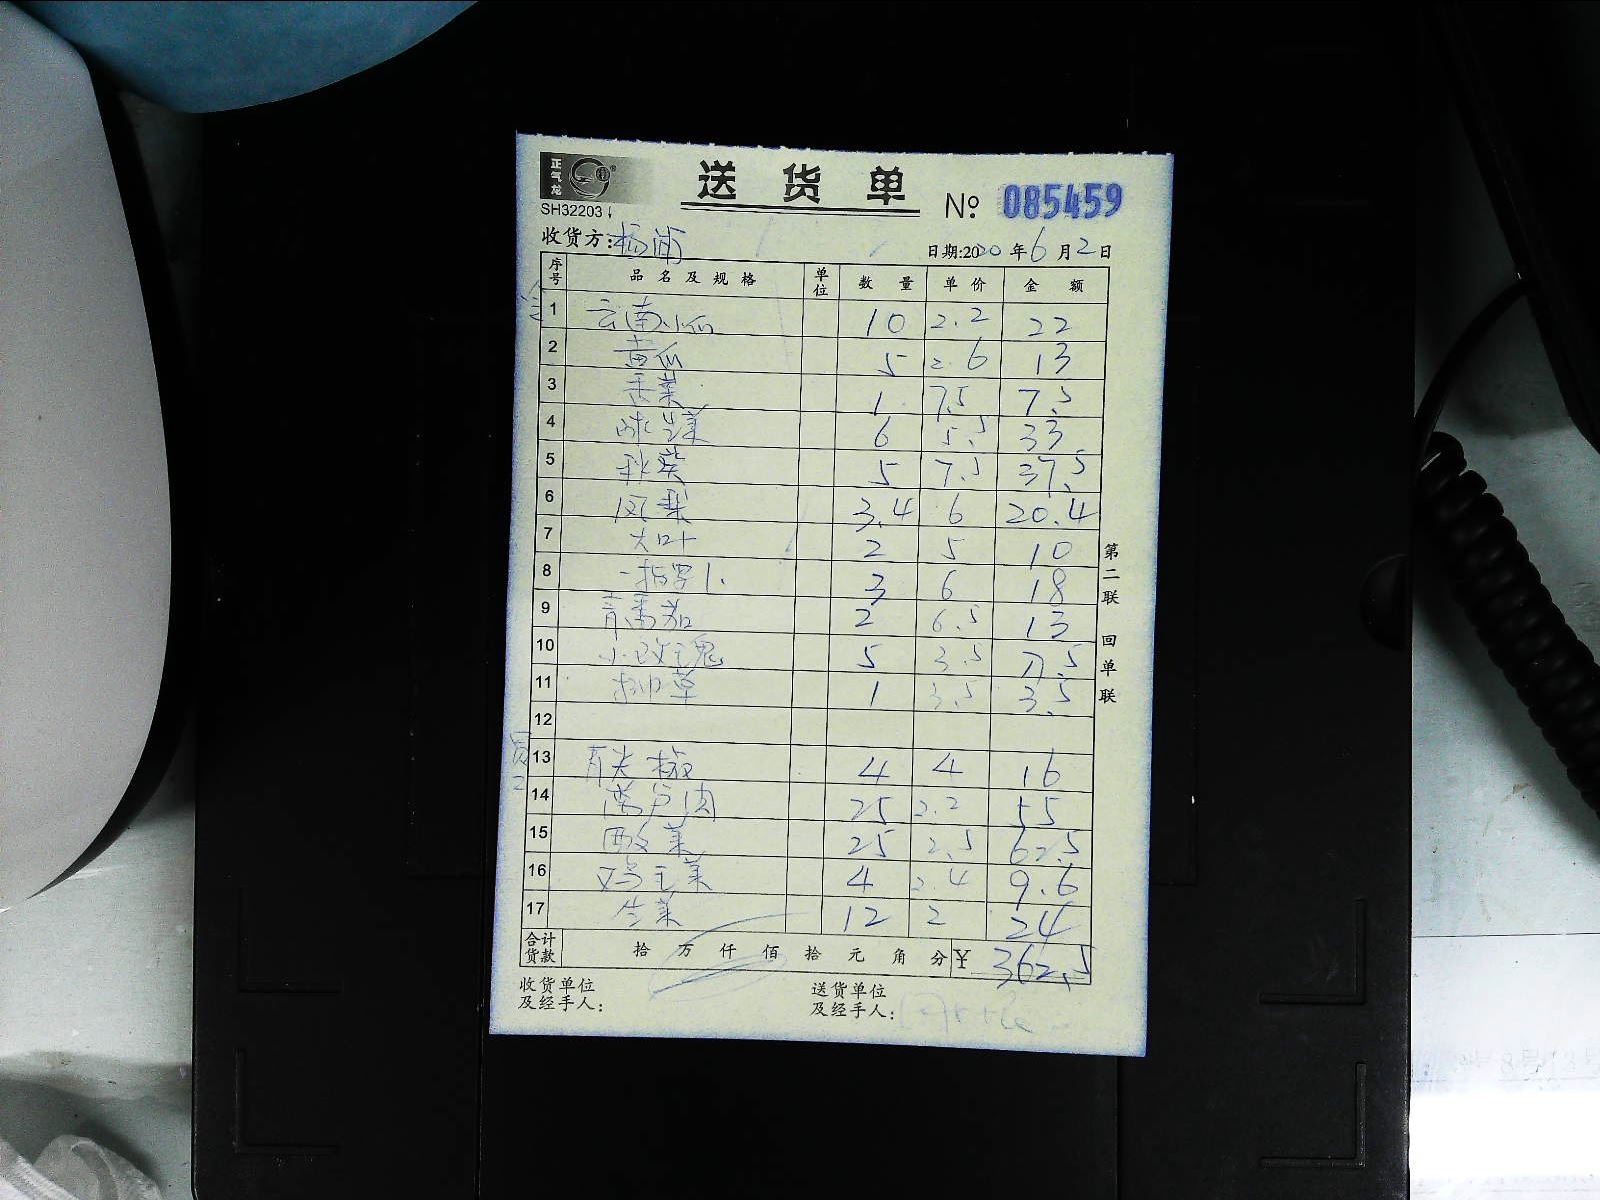 正气龙
送货单
SH32203
№ 085459
收货方:杨浦
日期:2020年6月2日
序号 品名及规格 单位 数量 单价 金额
1 云南小瓜 10 2.2 22
2 黄瓜 5 2.6 13
3 1 7.5 7.5
4 球生菜 6 5.5 33
5 秋葵 5 7.5 37.5
6 凤梨 3.4 6 20.4
7 大叶 2 5 10
8 3 6 18
9 青番茄 2 6.5 13
10 小玫瑰 5 3.5 17.5
11 1 3.5 3.5
12
13 青尖椒 4 4 16
14 25 2.2 55
15 酸菜 25 2.5 62.5
16 鸡毛菜 4 2.4 9.6
17 生菜 12 2 24
合计货款 拾万仟佰拾元角分 ¥ 362.5
收货单位及经手人:
送货单位及经手人:
第二联 回单联